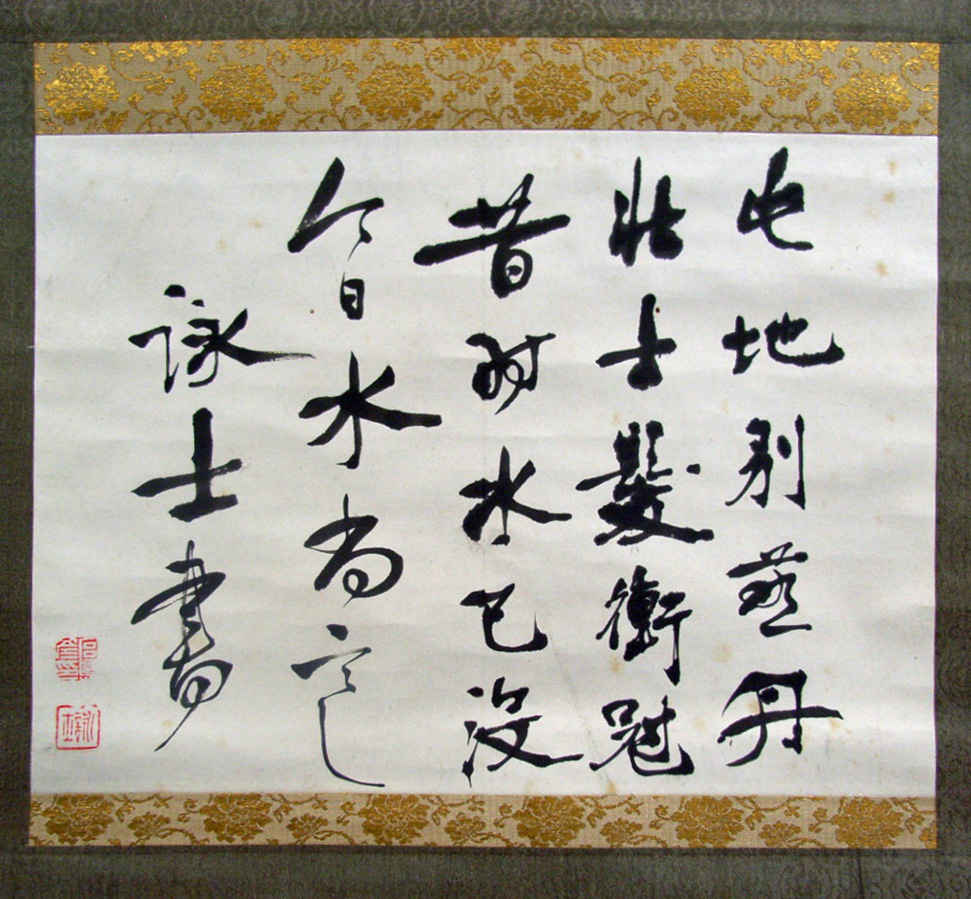 此地別燕丹
壯士髮衝冠
昔時水已没
今日水尚寒
詠士書